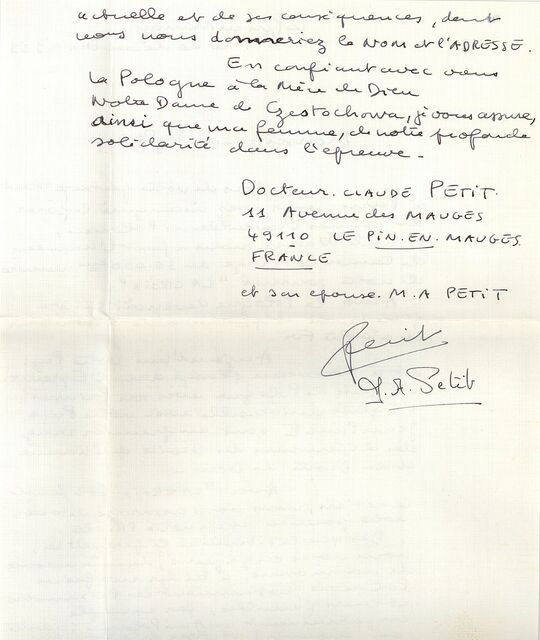 actuelle et de ses conséquences, dont
vous nous donneriez le NOM et l'ADRESSE.
En confiant avec vous
la Pologne à la Mère de Dieu
Notre Dame de Czestochowa, je vous assure,
ainsi que ma femme, de notre profonde
solidarité dans l'épreuve -
Docteur. CLAUDE PETIT.
11 Avenue des MAUGES
49110 LE PIN. EN. MAUGES.
FRANCE
et son épouse. M. A PETIT
Petit
M. A. Petit